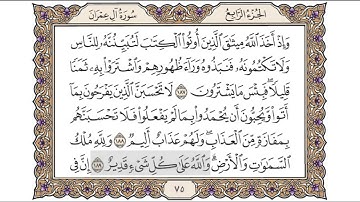 الجزء الرابع
سورة آل عمران
وَإِذْ أَخَذَ ٱللَّهُ مِيثَٰقَ ٱلَّذِينَ أُوتُوا۟ ٱلْكِتَٰبَ لَتُبَيِّنُنَّهُۥ لِلنَّاسِ
وَلَا تَكْتُمُونَهُۥ فَنَبَذُوهُ وَرَآءَ ظُهُورِهِمْ وَٱشْتَرَوْا۟ بِهِۦ ثَمَنًا
قَلِيلًا ۖ فَبِئْسَ مَا يَشْتَرُونَ ١٨٧ لَا تَحْسَبَنَّ ٱلَّذِينَ يَفْرَحُونَ بِمَآ
أَتَوا۟ وَّيُحِبُّونَ أَن يُحْمَدُوا۟ بِمَا لَمْ يَفْعَلُوا۟ فَلَا تَحْسَبَنَّهُم
بِمَفَازَةٍ مِّنَ ٱلْعَذَابِ ۖ وَلَهُمْ عَذَابٌ أَلِيمٌ ١٨٨ وَلِلَّهِ مُلْكُ
ٱلسَّمَٰوَٰتِ وَٱلْأَرْضِ ۗ وَٱللَّهُ عَلَىٰ كُلِّ شَىْءٍ قَدِيرٌ ١٨٩ إِنَّ فِى
٧٥